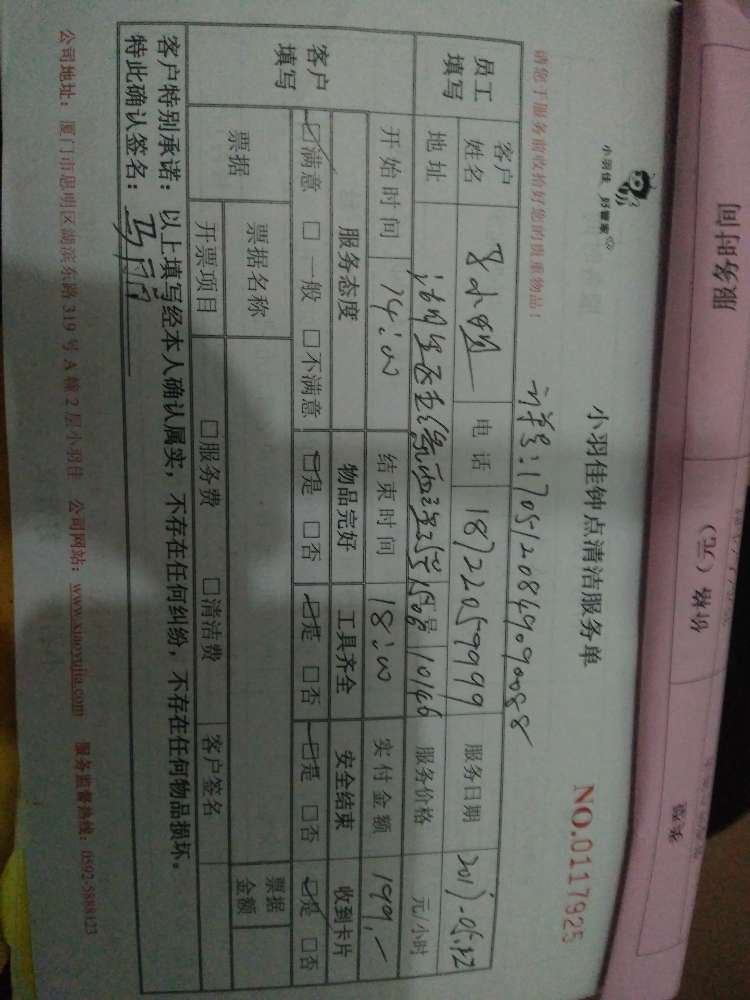 服务时间
价格（元）
小羽佳 好管家
小羽佳钟点清洁服务单
NO.0117925
请您于服务前收拾好您的贵重物品！
员工填写
客户姓名
马小姐
电话
18722059999
服务日期
地址
工号
10146
服务价格
元/小时
开始时间
14:00
结束时间
18:00
实付金额
199.-
客户填写
服务态度
物品完好
工具齐全
安全结束
收到卡片
☑满意 □一般 □不满意
☑是 □否
☑是 □否
☑是 □否
☑是 □否
票据
票据名称
票据金额
开票项目
□服务费 □清洁费
客户签名
客户特别承诺：以上填写经本人确认属实，不存在任何纠纷，不存在任何物品损坏。
特此确认签名：
公司地址：厦门市思明区湖滨东路319号A幢2层小羽佳 公司网站：www.xiaoyujia.com 服务监督热线：0592-5888123